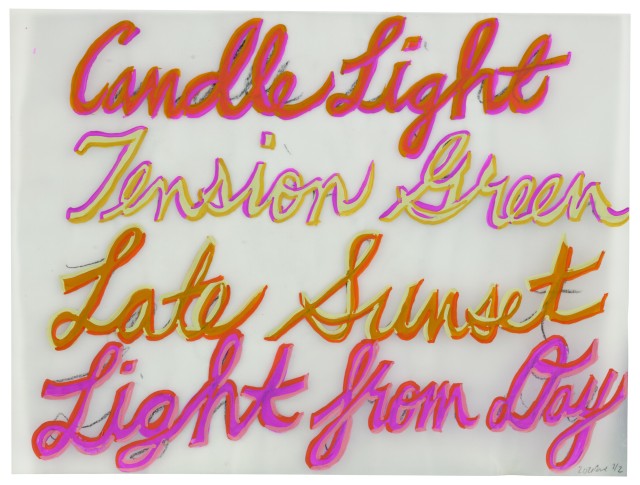 Candle Light
Tension Green
Late Sunset
Light from Day